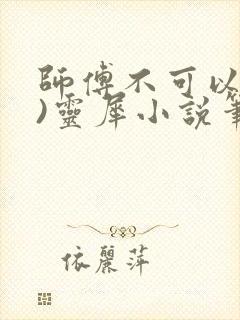 師傅不可以
)靈犀小說筆
依麗萍